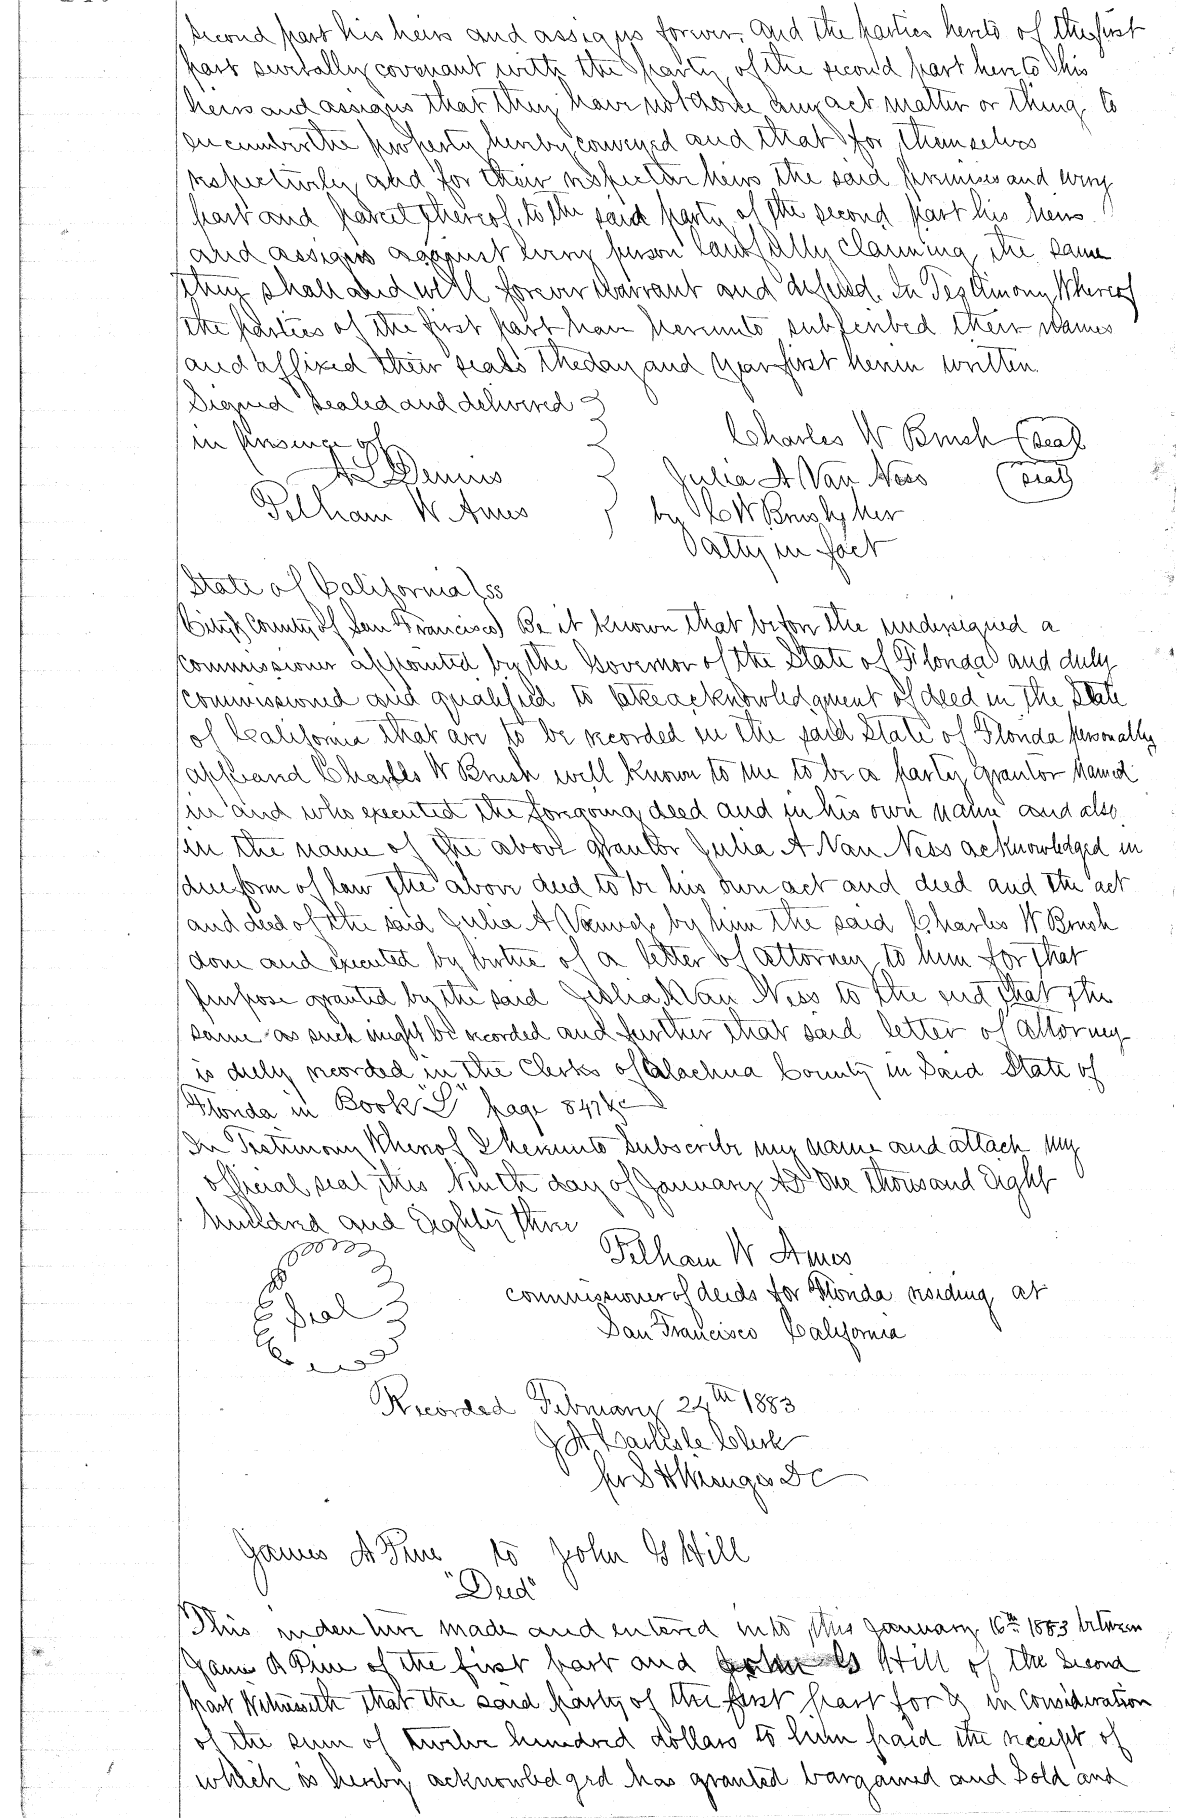 second part his heirs and assigns forever. And the parties hereto of the first
part severally covenant with the party of the second part hereto his
heirs and assigns that they have not done any act matter or thing to
encumber the property hereby conveyed and that for themselves
respectively and for their respective heirs the said premises and every
part and parcel thereof, to the said party of the second part his heirs
and assigns against every person lawfully claiming the same
they shall and will forever warrant and defend. In Testimony Whereof
the parties of the first part have hereunto subscribed their names
and affixed their seals the day and year first herein written
Signed Sealed and delivered
in presence of
Charles W Brush (seal)
A S Dennis
Julia A Van Ness (seal)
Pelham W Ames
by C W Brush her
atty in fact
State of California (ss
City & County of San Francisco) Be it known that before the undersigned a
Commissioner appointed by the Governor of the State of Florida and duly
Commissioned and qualified to take acknowledgment of deed in the State
of California that are to be recorded in the said State of Florida personally
appeared Charles W Brush well known to me to be a party grantor named
in and who executed the foregoing deed and in his own name and also
in the name of the above grantor Julia A Van Ness acknowledged in
due form of law the above deed to be his own act and deed and the act
and deed of the said Julia A Vanness by him the said Charles W Brush
done and executed by virtue of a letter of attorney to him for that
purpose granted by the said Julia A Van Ness to the end that the
same as such might be recorded and further that said letter of attorney
is duly recorded in the Clerks of Alachua County in Said State of
Florida in Book "L" page 847 &c
In Testimony Whereof I hereunto Subscribe my name and attach my
official seal this Ninth day of January AD One thousand Eight
hundred and Eighty three
Pelham W Ames
Seal
commissioner of deeds for Florida residing at
San Francisco California
Recorded February 24th 1883
J A Carlisle Clerk
per S H Wienges DC
James A Pine to John G Hill
"Deed"
This indenture made and entered into this January 16th 1883 between
James A Pine of the first part and John G Hill of the Second
part Witnesseth that the said party of the first part for & in consideration
of the sum of twelve hundred dollars to him paid the receipt of
which is hereby acknowledged has granted bargained and Sold and